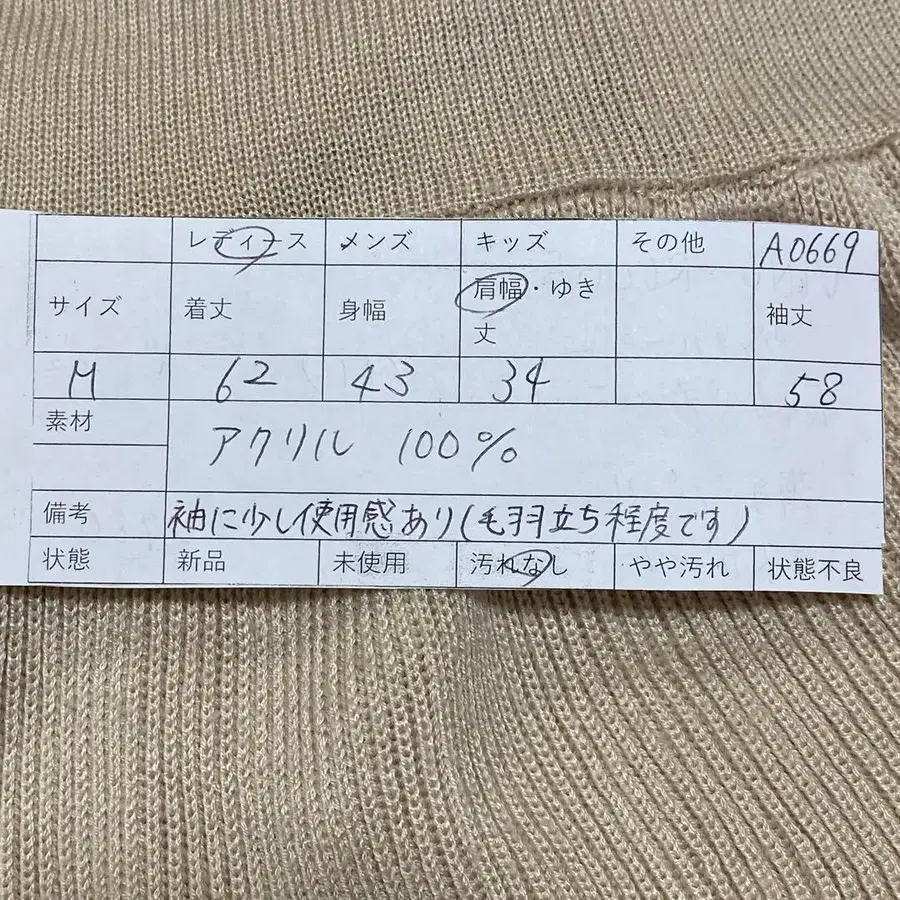 レディース メンズ キッズ その他 A0669
サイズ 着丈 身幅 肩幅・ゆき丈 袖丈
M 62 43 34 58
素材 アクリル 100%
備考 袖に少し使用感あり(毛羽立ち程度です)
状態 新品 未使用 汚れなし やや汚れ 状態不良